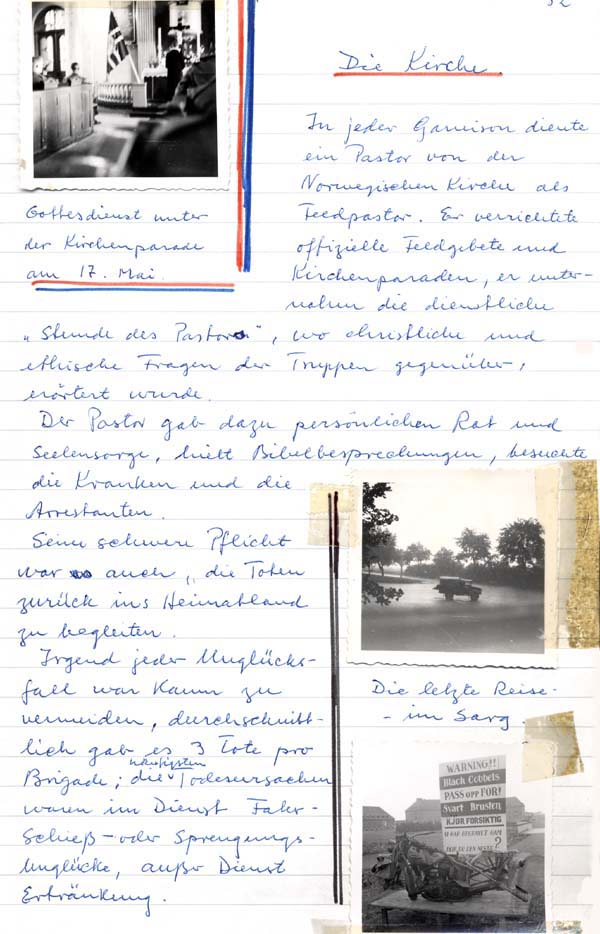 Die Kirche
Gottesdienst unter
der Kirchenparade
am 17. Mai.
In jeder Garnison diente
ein Pastor von der
Norwegischen Kirche als
Feedpastor. Er verrichtete
offizielle Feedgebete und
Kirchenparaden, er unter-
nahm die dienstliche
„Stunde des Pastors“, wo christliche und
ethische Fragen der Truppen gegenüber,
erörtert wurde.
Der Pastor gab dazu persönlichen Rat und
Seelensorge, hielt Bibelbesprechungen, besuchte
die Kranken und die
Arrestanten.
Seine schwere Pflicht
war auch, die Toten
zurück ins Heimatland
zu begleiten.
Irgend jeder Unglücks-
fall war kaum zu
vermeiden, durchschnitt-
lich gab es 3 Tote pro
Brigade; die häufigsten Todesursachen
waren im Dienst Fahr-
Schieß- oder Sprengungs-
Unglücke, außer Dienst
Ertränkung.
Die letzte Reise-
- im Sarg.
WARNING!!
Black Cobbels
PASS OPP FOR!
Svart Brusten
KJØR FORSIKTIG